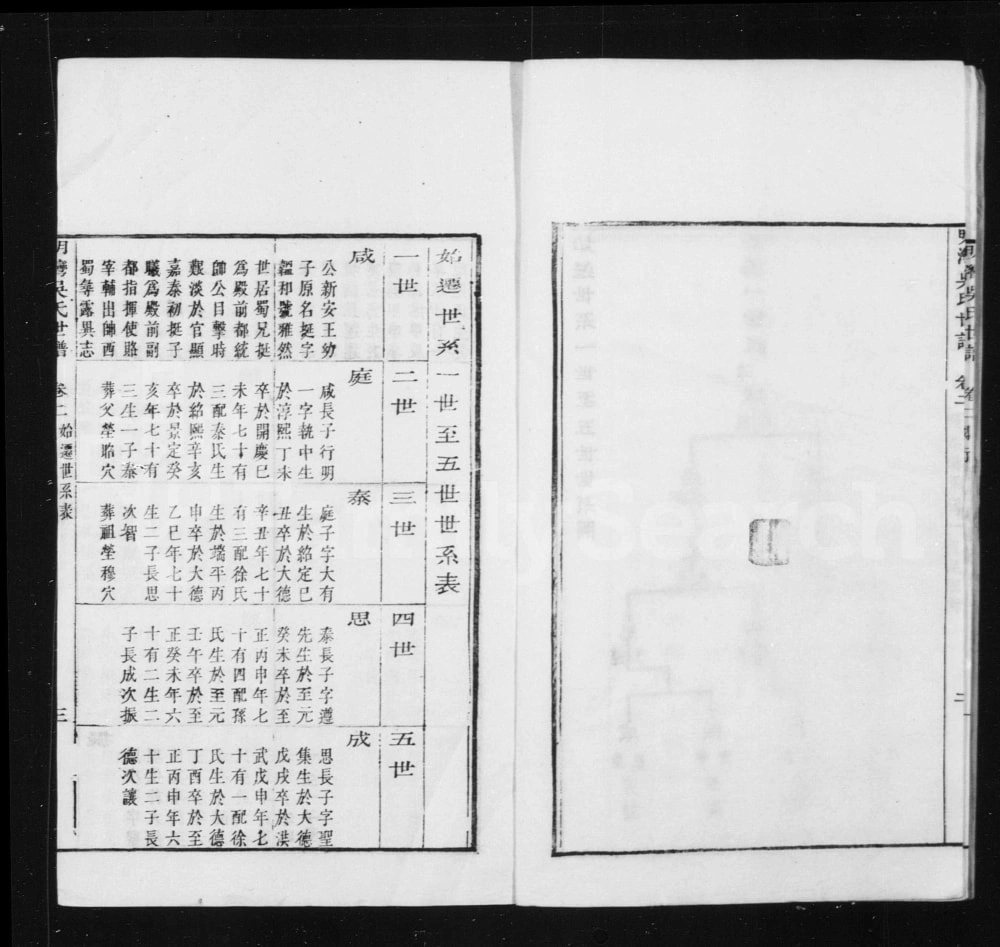 始遷世系一世至五世世系表
一世
咸
公新安王幼
子原名挺字
疆和號雅然
世居蜀兄挺
為殿前都統
帥公目擊時
艱淡於官顯
嘉泰初挺子
曦為殿前副
都指揮使賂
宰輔出帥西
蜀每露異志
二世
庭
咸長子行明
一字執中生
於淳熙丁未
卒於開慶己
未年七十有
三配秦氏生
於紹熙辛亥
卒於景定癸
亥年七十有
三生一子泰
葬父塋昭穴
三世
泰
庭子字大有
生於紹定己
丑卒於大德
辛丑年七十
有三配徐氏
生於端平丙
申卒於大德
乙巳年七十
生二子長思
次智
葬祖塋穆穴
四世
思
泰長子字遵
先生於至元
癸未卒於至
正丙申年七
十有四配孫
氏生於至元
壬午卒於至
正癸未年六
十有二生二
子長成次振
五世
成
思長子字聖
集生於大德
戊戌卒於洪
武戊申年七
十有一配徐
氏生於大德
丁酉卒於至
正丙申年六
十生二子長
德次讓
明灣吳氏世譜 卷二 始遷世系表 三